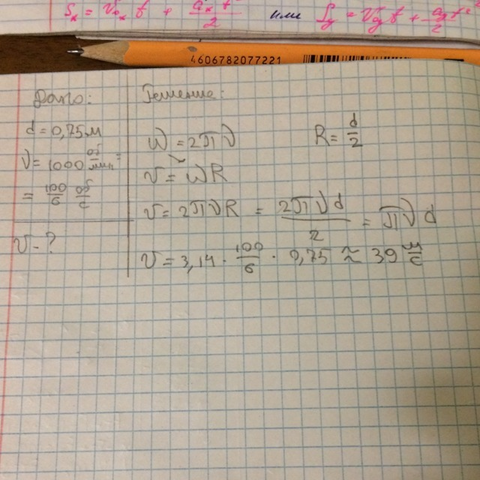 Sₓ = V₀ₓt + aₓt²/2 или Sy = V₀yt + ayt²/2
4606782077221
Дано:
d = 0,75 м
ν = 1000 об/мин =
= 100/6 об/с
v - ?
Решение:
ω = 2πν R = d/2
v = ωR
v = 2πνR = 2πνd/2 = πνd
v = 3,14 · 100/6 · 0,75 ≈ 39 м/с